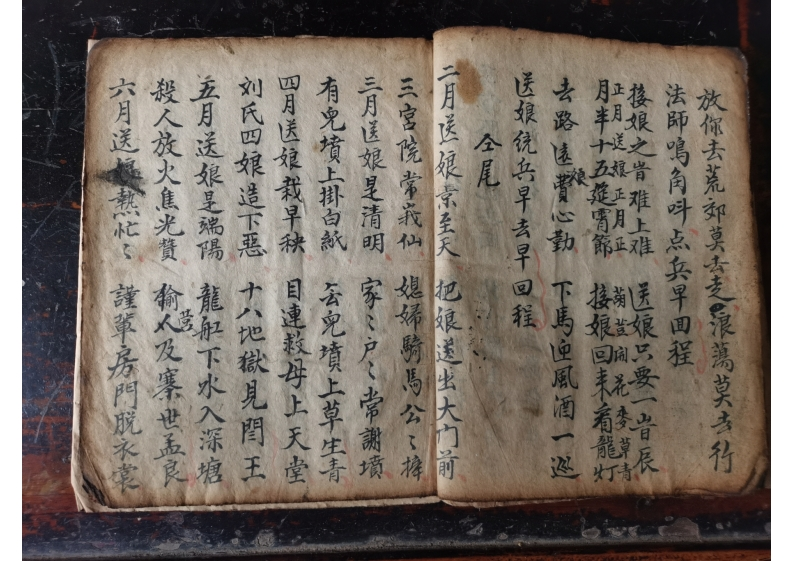 放你去荒郊莫去走 浪蕩莫去行
法師鳴角呌点兵早回程
接娘之时难上难 送娘只要一时辰
正月送娘正月正 萄荳開花麥草青
月半十五是宵節 接娘回来看龍灯
去路遠費娘心勤 下馬迎風酒一巡
送娘统兵早去早回程
仝尾
二月送娘 至天 把娘送出大门前
三宫院常 仙 媳婦騎馬公〻
三月送娘是清明 家〻户〻常謝墳
有兒墳上掛白紙 無兒墳上草生青
四月送娘栽早秧 目連救母上天堂
刘氏四娘造下惡 十八地獄見閆王
五月送娘是端陽 龍船下水入深塘
殺人放火焦光賛 人及寨世孟良
六月送娘熱忙〻 謹 房門脱衣裳